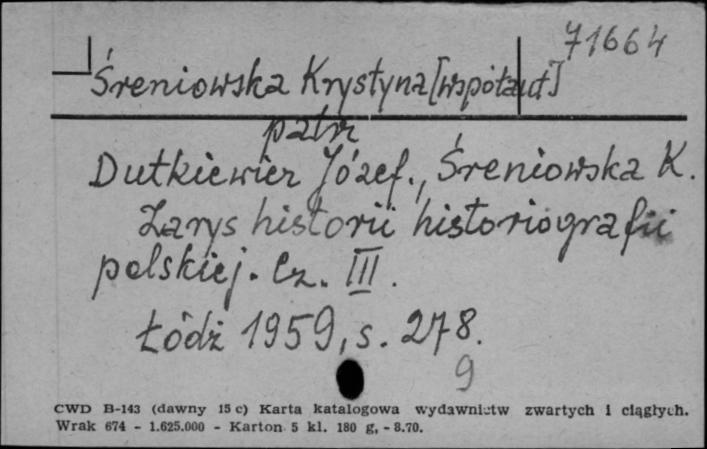 71664
Śreniowska Krystyna [współaut]
patrz
Dutkiewicz Józef., Śreniowska K.
Zarys historii historiografii
polskiej. Cz. III.
Łódź 1959, s. 278.
9
CWD B-143 (dawny 15 c) Karta katalogowa wydawnictw zwartych i ciągłych.
Wrak 674 - 1.625.000 - Karton 5 kl. 180 g, - 8.70.